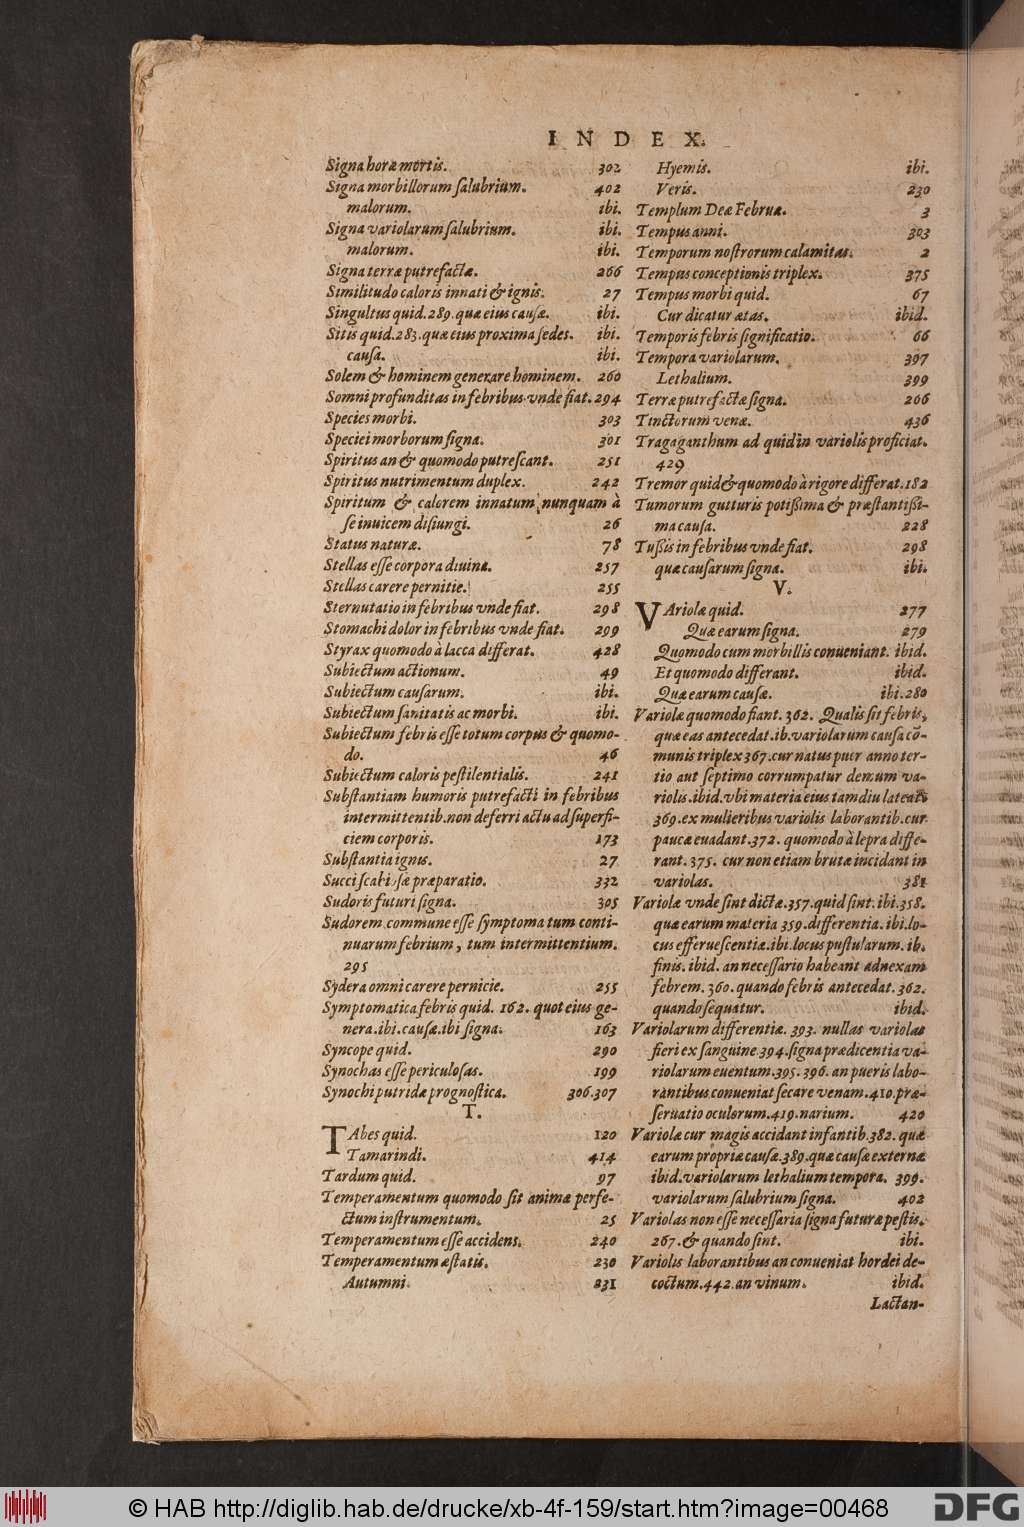 INDEX.
Signa horæ mortis. 302
Signa morbillorum ſalubrium. 402
malorum. ibi.
Signa variolarum ſalubrium. ibi.
malorum. ibi.
Signa terræ putrefactæ. 266
Similitudo caloris innati & ignis. 27
Singultus quid. 289. quæ eius cauſæ. ibi.
Sitis quid. 283. quæ eius proxima ſedes. ibi.
cauſa. ibi.
Solem & hominem generare hominem. 260
Somni profunditas in febribus vnde fiat. 294
Species morbi. 303
Speciei morborum ſigna. 301
Spiritus an & quomodo putreſcant. 251
Spiritus nutrimentum duplex. 242
Spiritum & calorem innatum nunquam à
ſe inuicem diſiungi. 26
Status naturæ. 78
Stellas eſſe corpora diuina. 257
Stellas carere pernitie. 255
Sternutatio in febribus vnde fiat. 298
Stomachi dolor in febribus vnde fiat. 299
Styrax quomodo à lacca differat. 428
Subiectum actionum. 49
Subiectum cauſarum. ibi.
Subiectum ſanitatis ac morbi. ibi.
Subiectum febris eſſe totum corpus & quomo-
do. 46
Subiectum caloris peſtilentialis. 241
Subſtantiam humoris putrefacti in febribus
intermittentib. non deferri actu ad ſuperfi-
ciem corporis. 173
Subſtantia ignis. 27
Succi ſcabioſæ præparatio. 332
Sudoris futuri ſigna. 305
Sudorem commune eſſe ſymptoma tum conti-
nuarum febrium, tum intermittentium.
295
Sydera omni carere pernicie. 255
Symptomatica febris quid. 162. quot eius ge-
nera. ibi. cauſæ. ibi ſigna. 163
Syncope quid. 290
Synochas eſſe periculoſas. 199
Synochi putridæ prognoſtica. 306.307
T.
TAbes quid. 120
Tamarindi. 414
Tardum quid. 97
Temperamentum quomodo ſit animæ perfe-
ctum inſtrumentum. 25
Temperamentum eſſe accidens. 240
Temperamentum æſtatis. 230
Autumni. 231
Hyemis. ibi.
Veris. 230
Templum Deæ Februæ. 3
Tempus anni. 303
Temporum noſtrorum calamitas. 2
Tempus conceptionis triplex. 375
Tempus morbi quid. 67
Cur dicatur ætas. ibid.
Temporis febris ſignificatio. 66
Tempora variolarum. 397
Lethalium. 399
Terræ putrefactæ ſigna. 266
Tinctorum venæ. 436
Tragaganthum ad quid in variolis proficiat.
429
Tremor quid & quomodo à rigore differat. 182
Tumorum gutturis potißima & præſtantißi-
ma cauſa. 228
Tußis in febribus vnde fiat. 298
quæ cauſarum ſigna. ibi.
V.
VAriolæ quid. 277
Quæ earum ſigna. 279
Quomodo cum morbillis conueniant. ibid.
Et quomodo differant. ibid.
Quæ earum cauſæ. ibi. 280
Variolæ quomodo fiant. 362. Qualis ſit febris,
quæ eas antecedat. ib. variolarum cauſa cō-
munis triplex 367. cur natus puer anno ter-
tio aut ſeptimo corrumpatur demum va-
riolis. ibid. vbi materia eius tamdiu lateat?
369. ex mulieribus variolis laborantib. cur
paucæ euadant. 372. quomodo à lepra diffe-
rant. 375. cur non etiam bruta incidant in
variolas. 381
Variolæ vnde ſint dictæ. 357. quid ſint. ibi. 358.
quæ earum materia 359. differentia. ibi. lo-
cus efferueſcentiæ. ibi. locus puſtularum. ib.
finis. ibid. an neceſſario habeant adnexam
febrem. 360. quando febris antecedat. 362.
quando ſequatur. ibid.
Variolarum differentiæ. 393. nullas variolas
fieri ex ſanguine. 394. ſigna prædicentia va-
riolarum euentum. 395. 396. an pueris labo-
rantibus conueniat ſecare venam. 410. præ-
ſeruatio oculorum. 419. narium. 420
Variolæ cur magis accidant infantib. 382. quæ
earum propriæ cauſæ. 389. quæ cauſæ externæ
ibid. variolarum lethalium tempora. 399.
variolarum ſalubrium ſigna. 402
Variolas non eſſe neceſſaria ſigna futuræ peſtis.
267. & quando ſint. ibi.
Variolis laborantibus an conueniat hordei de-
coctum. 442. an vinum. ibid.
Lactan-
© HAB http://diglib.hab.de/drucke/xb-4f-159/start.htm?image=00468
DFG